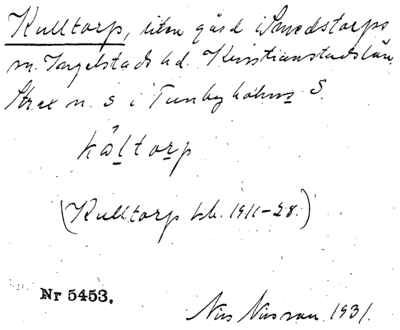 Kulltorp, liten gård i Smedstorps
sn. Ingelstads hd. Kristianstads län
Strax n. s i Tunbyholms S.
kåltorp
(Kulltorp kb. 1911–28.)
Nr 5453.
Nils Nilsson 1931.